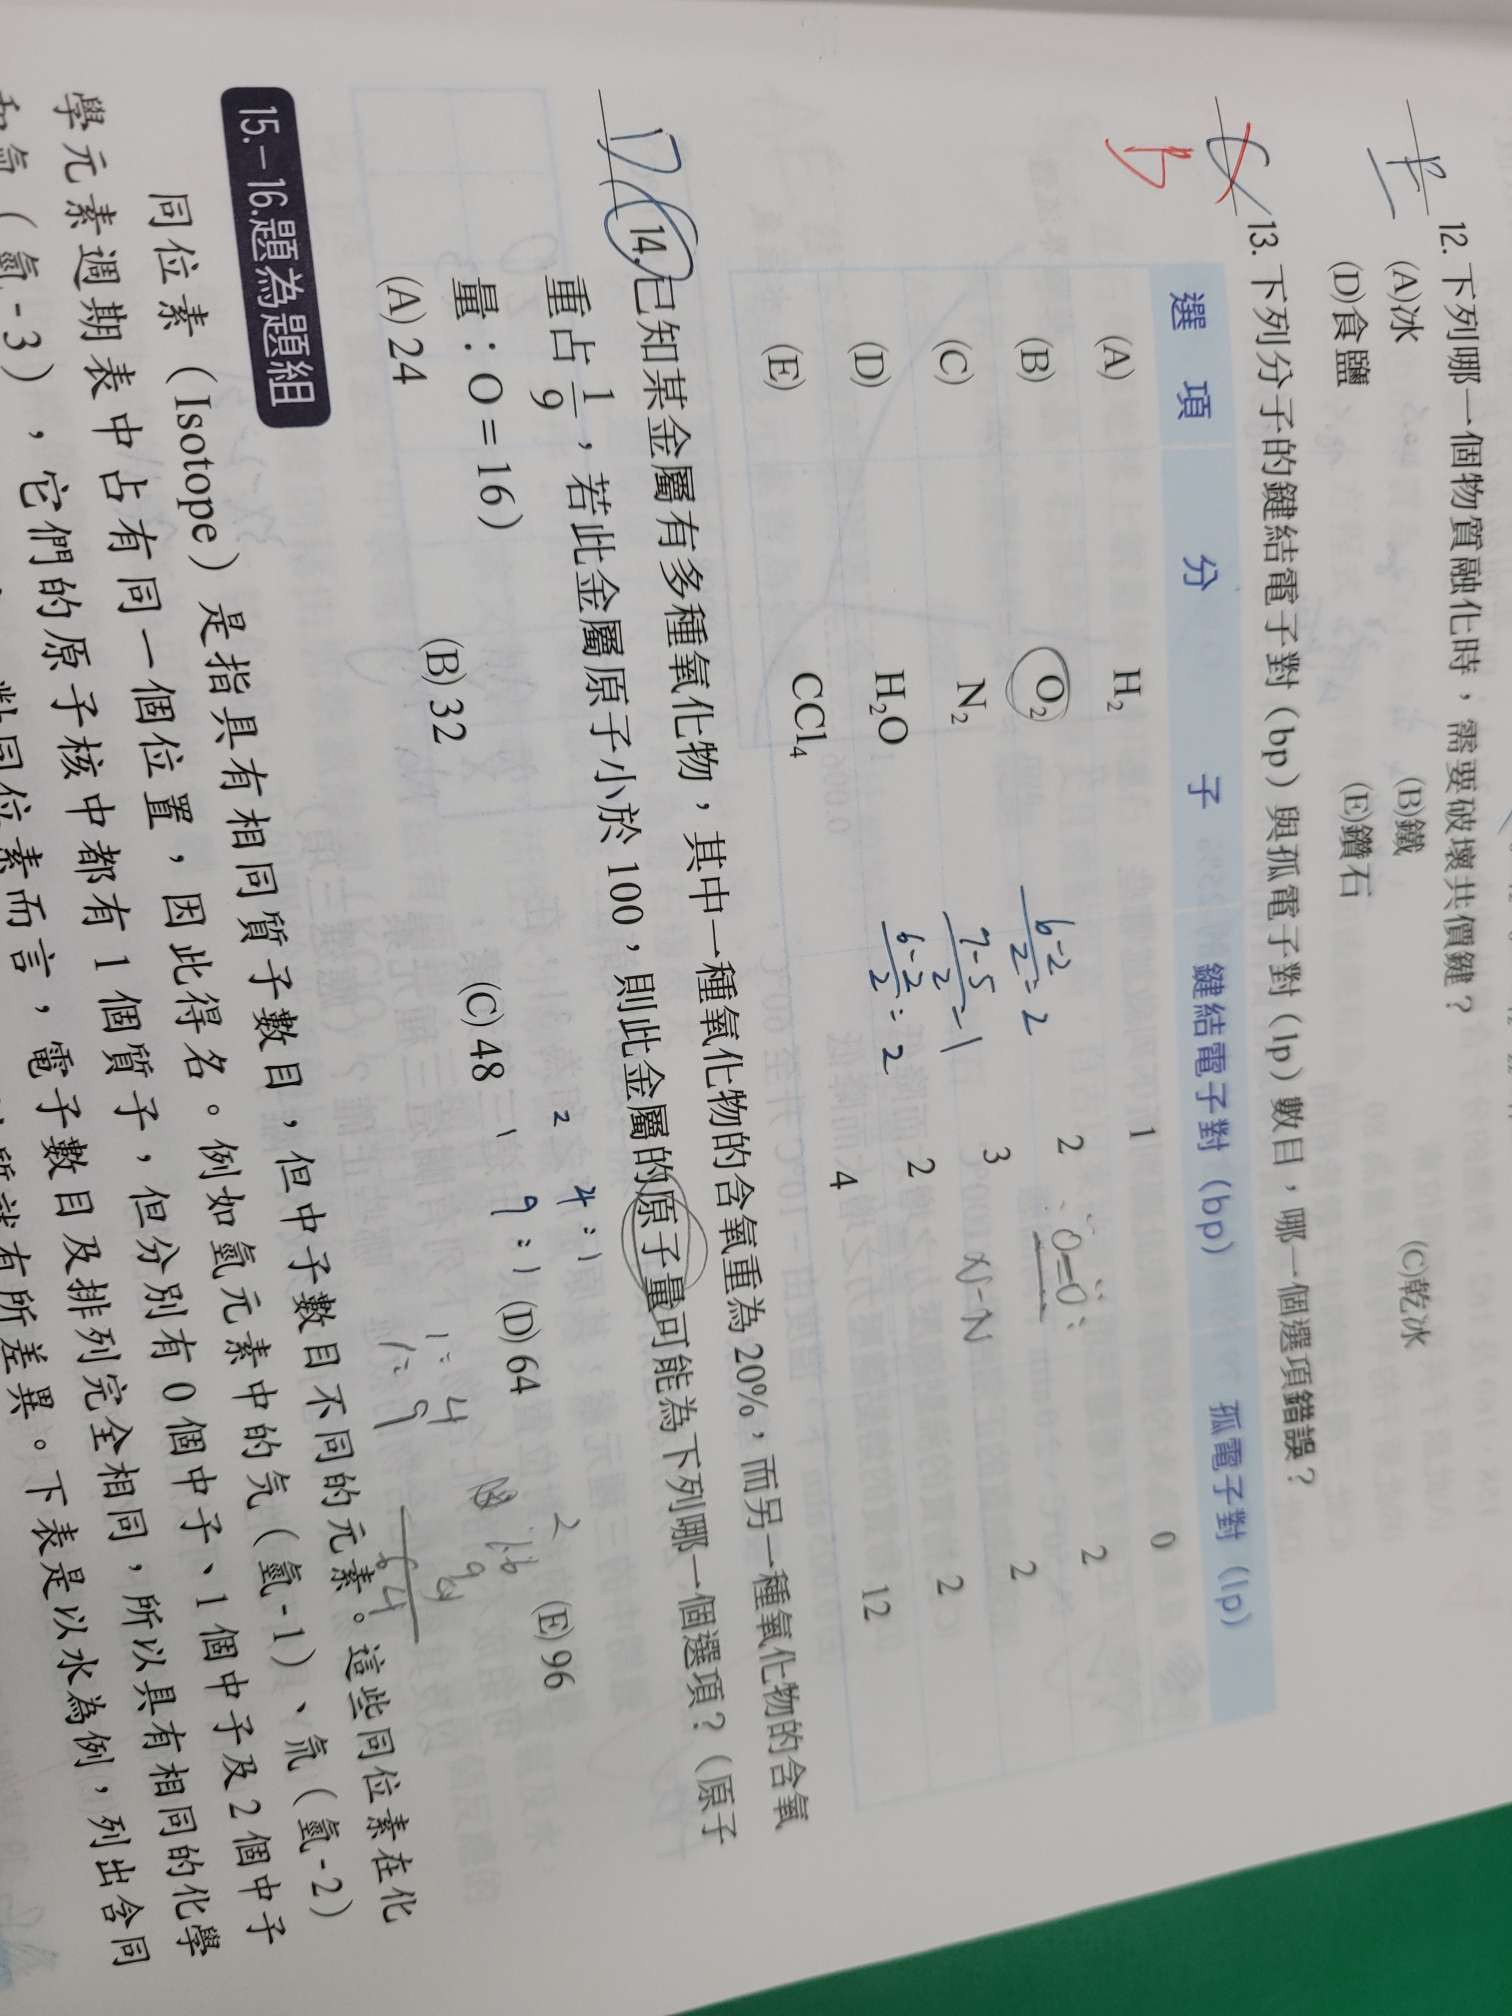 12. 下列哪一個物質融化時，需要破壞共價鍵？
(A)冰 (B)鐵 (C)乾冰
(D)食鹽 (E)鑽石
13. 下列分子的鍵結電子對(bp)與孤電子對(lp)數目，哪一個選項錯誤？
b
選項 分子 鍵結電子對(bp) 孤電子對(lp)
(A) H₂ 1 0
(B) O₂ 2 2
6-2/2=2
(C) N₂ 3 2
7-5/2=1
N-N
(D) H₂O 2 2
6-2/2=2
(E) CCl₄ 4 12
D
14. 已知某金屬有多種氧化物，其中一種氧化物的含氧重為20%，而另一種氧化物的含氧
重占1/9，若此金屬原子小於100，則此金屬的原子量可能為下列哪一個選項？(原子
量：O=16)
2 4:1
1 9:1
(A) 24 (B) 32 (C) 48 (D) 64 (E) 96
1:4
1:9
64
15.－16.題為題組
同位素（Isotope）是指具有相同質子數目，但中子數目不同的元素。這些同位素在化
學元素週期表中占有同一個位置，因此得名。例如氫元素中的氕（氫-1）、氘（氫-2）
和氚（氫-3），它們的原子核中都有1個質子，但分別有0個中子、1個中子及2個中子
對同位素而言，電子數目及排列完全相同，所以具有相同的化學
就有所差異。下表是以水為例，列出含同